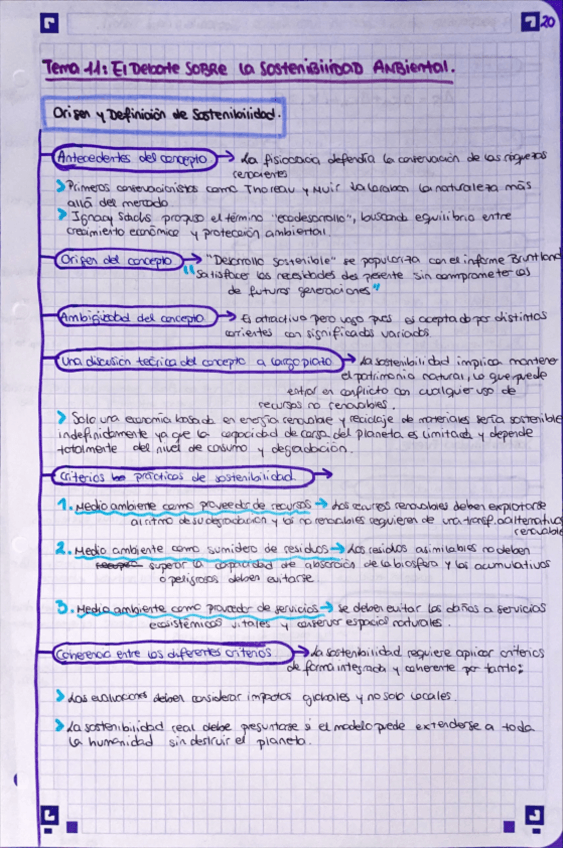 20
Tema 11: El Debate SOBRE la SOSTENIBILIDAD AMBIENTAL.
Origen y Definición de Sostenibilidad.
Antecedentes del concepto → La fisiocracia defendía la conservación de las riquezas
renacientes
> Primeros conservacionistas como Thoreau y Muir valoraban la naturaleza más
allá del mercado.
> Ignacy Sachs propuso el término "ecodesarrollo", buscando equilibrio entre
crecimiento económico y protección ambiental.
Origen del concepto → "Desarrollo sostenible" se populariza con el informe Bruntland
"Satisfacer las necesidades del presente sin comprometer las
de futuras generaciones"
Ambigüedad del concepto → Es atractivo pero vago pues es aceptado por distintas
corrientes con significados variados.
Una discusión teórica del concepto a largo plazo → La sostenibilidad implica mantener
el patrimonio natural, lo que puede
entrar en conflicto con cualquier uso de
recursos no renovables.
> Solo una economía basada en energía renovable y reciclaje de materiales sería sostenible
indefinidamente ya que la capacidad de carga del planeta es limitada y depende
totalmente del nivel de consumo y degradación.
Criterios prácticos de sostenibilidad. →
1. Medio ambiente como proveedor de recursos → Los recursos renovables deben explotarse
al ritmo de su degradación y los no renovables requieren de una transf. a alternativas
renovables
2. Medio ambiente como sumidero de residuos → Los residuos asimilables no deben
superar la capacidad de absorción de la biosfera y los acumulativos
o peligrosos deben evitarse.
3. Medio ambiente como proveedor de servicios → se deben evitar los daños a servicios
ecosistémicos vitales y conservar espacios naturales.
Coherencia entre los diferentes criterios. → La sostenibilidad requiere aplicar criterios
de forma integrada y coherente por tanto:
> Las evaluaciones deben considerar impactos globales y no solo locales.
> La sostenibilidad real debe preguntarse si el modelo puede extenderse a toda
la humanidad sin destruir el planeta.